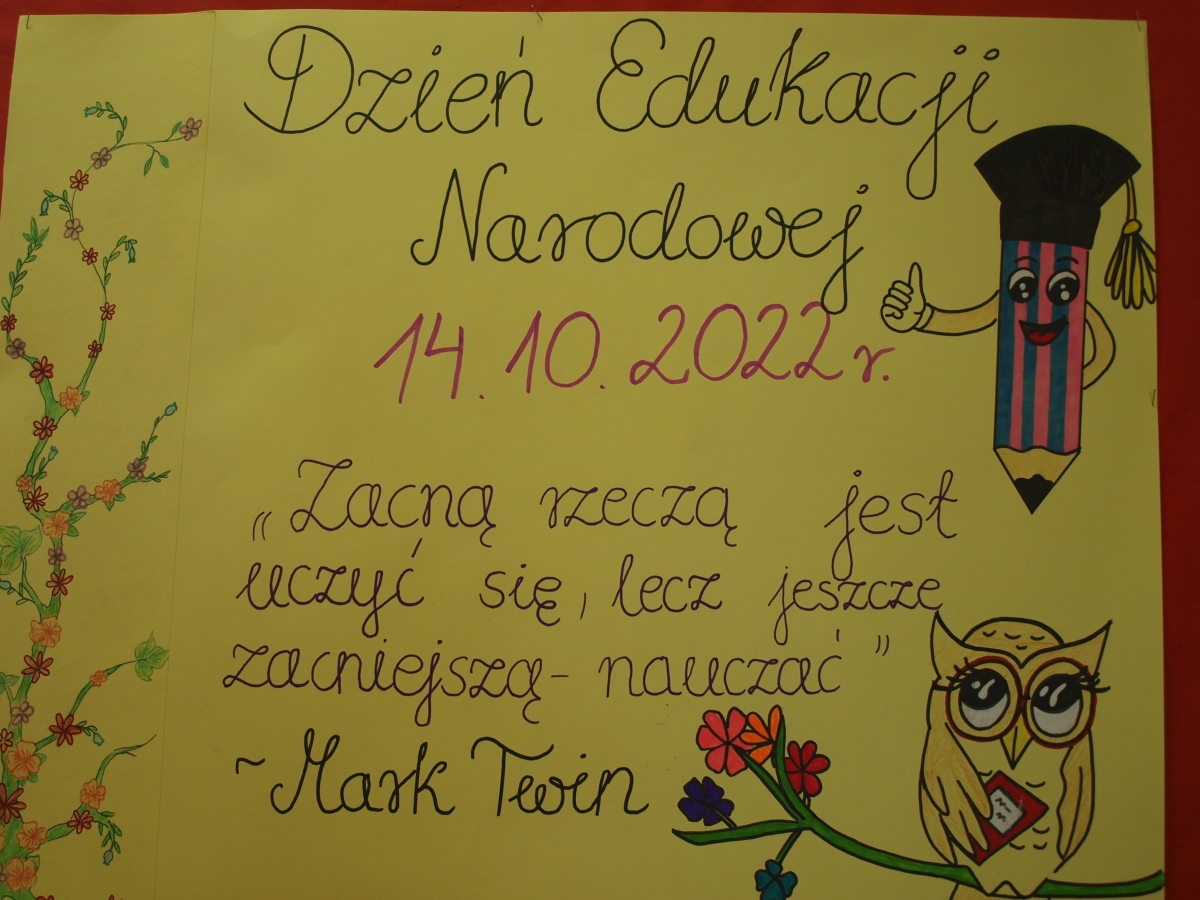 Dzień Edukacji
Narodowej
14.10.2022 r.
„Zacną rzeczą jest
uczyć się, lecz jeszcze
zacniejszą - nauczać”
~ Mark Twin